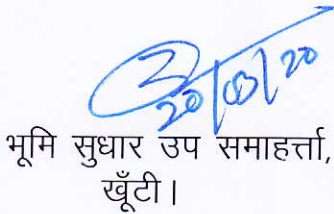 20/03/20
भूमि सुधार उप समाहर्त्ता,
खूँटी।